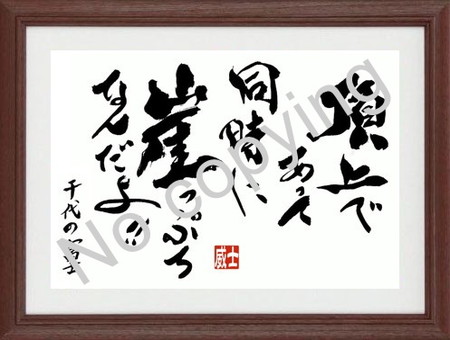 頂上で
あって
同時に
崖っぷち
なんだよ!!
千代の富士
威士
No copying